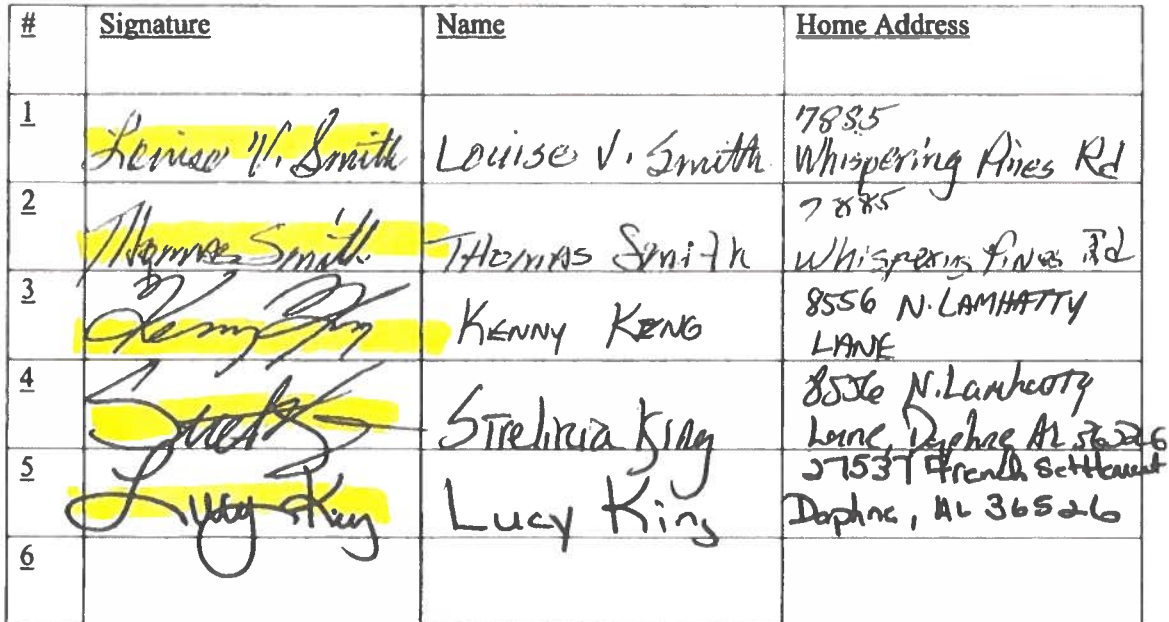 # Signature Name Home Address
1 Louise V. Smith Louise V. Smith 7885
Whispering Pines Rd
2 Thomas Smith THOMAS Smith 7885
Whispering Pines Rd
3 Kenny King KENNY KING 8556 N. LAMHATTY
LANE
4 Strelitzia King 8556 N. Lamhatty
Lane, Daphne AL 36526
5 Lucy King Lucy King 27537 French Settlement
Daphne, AL 36526
6